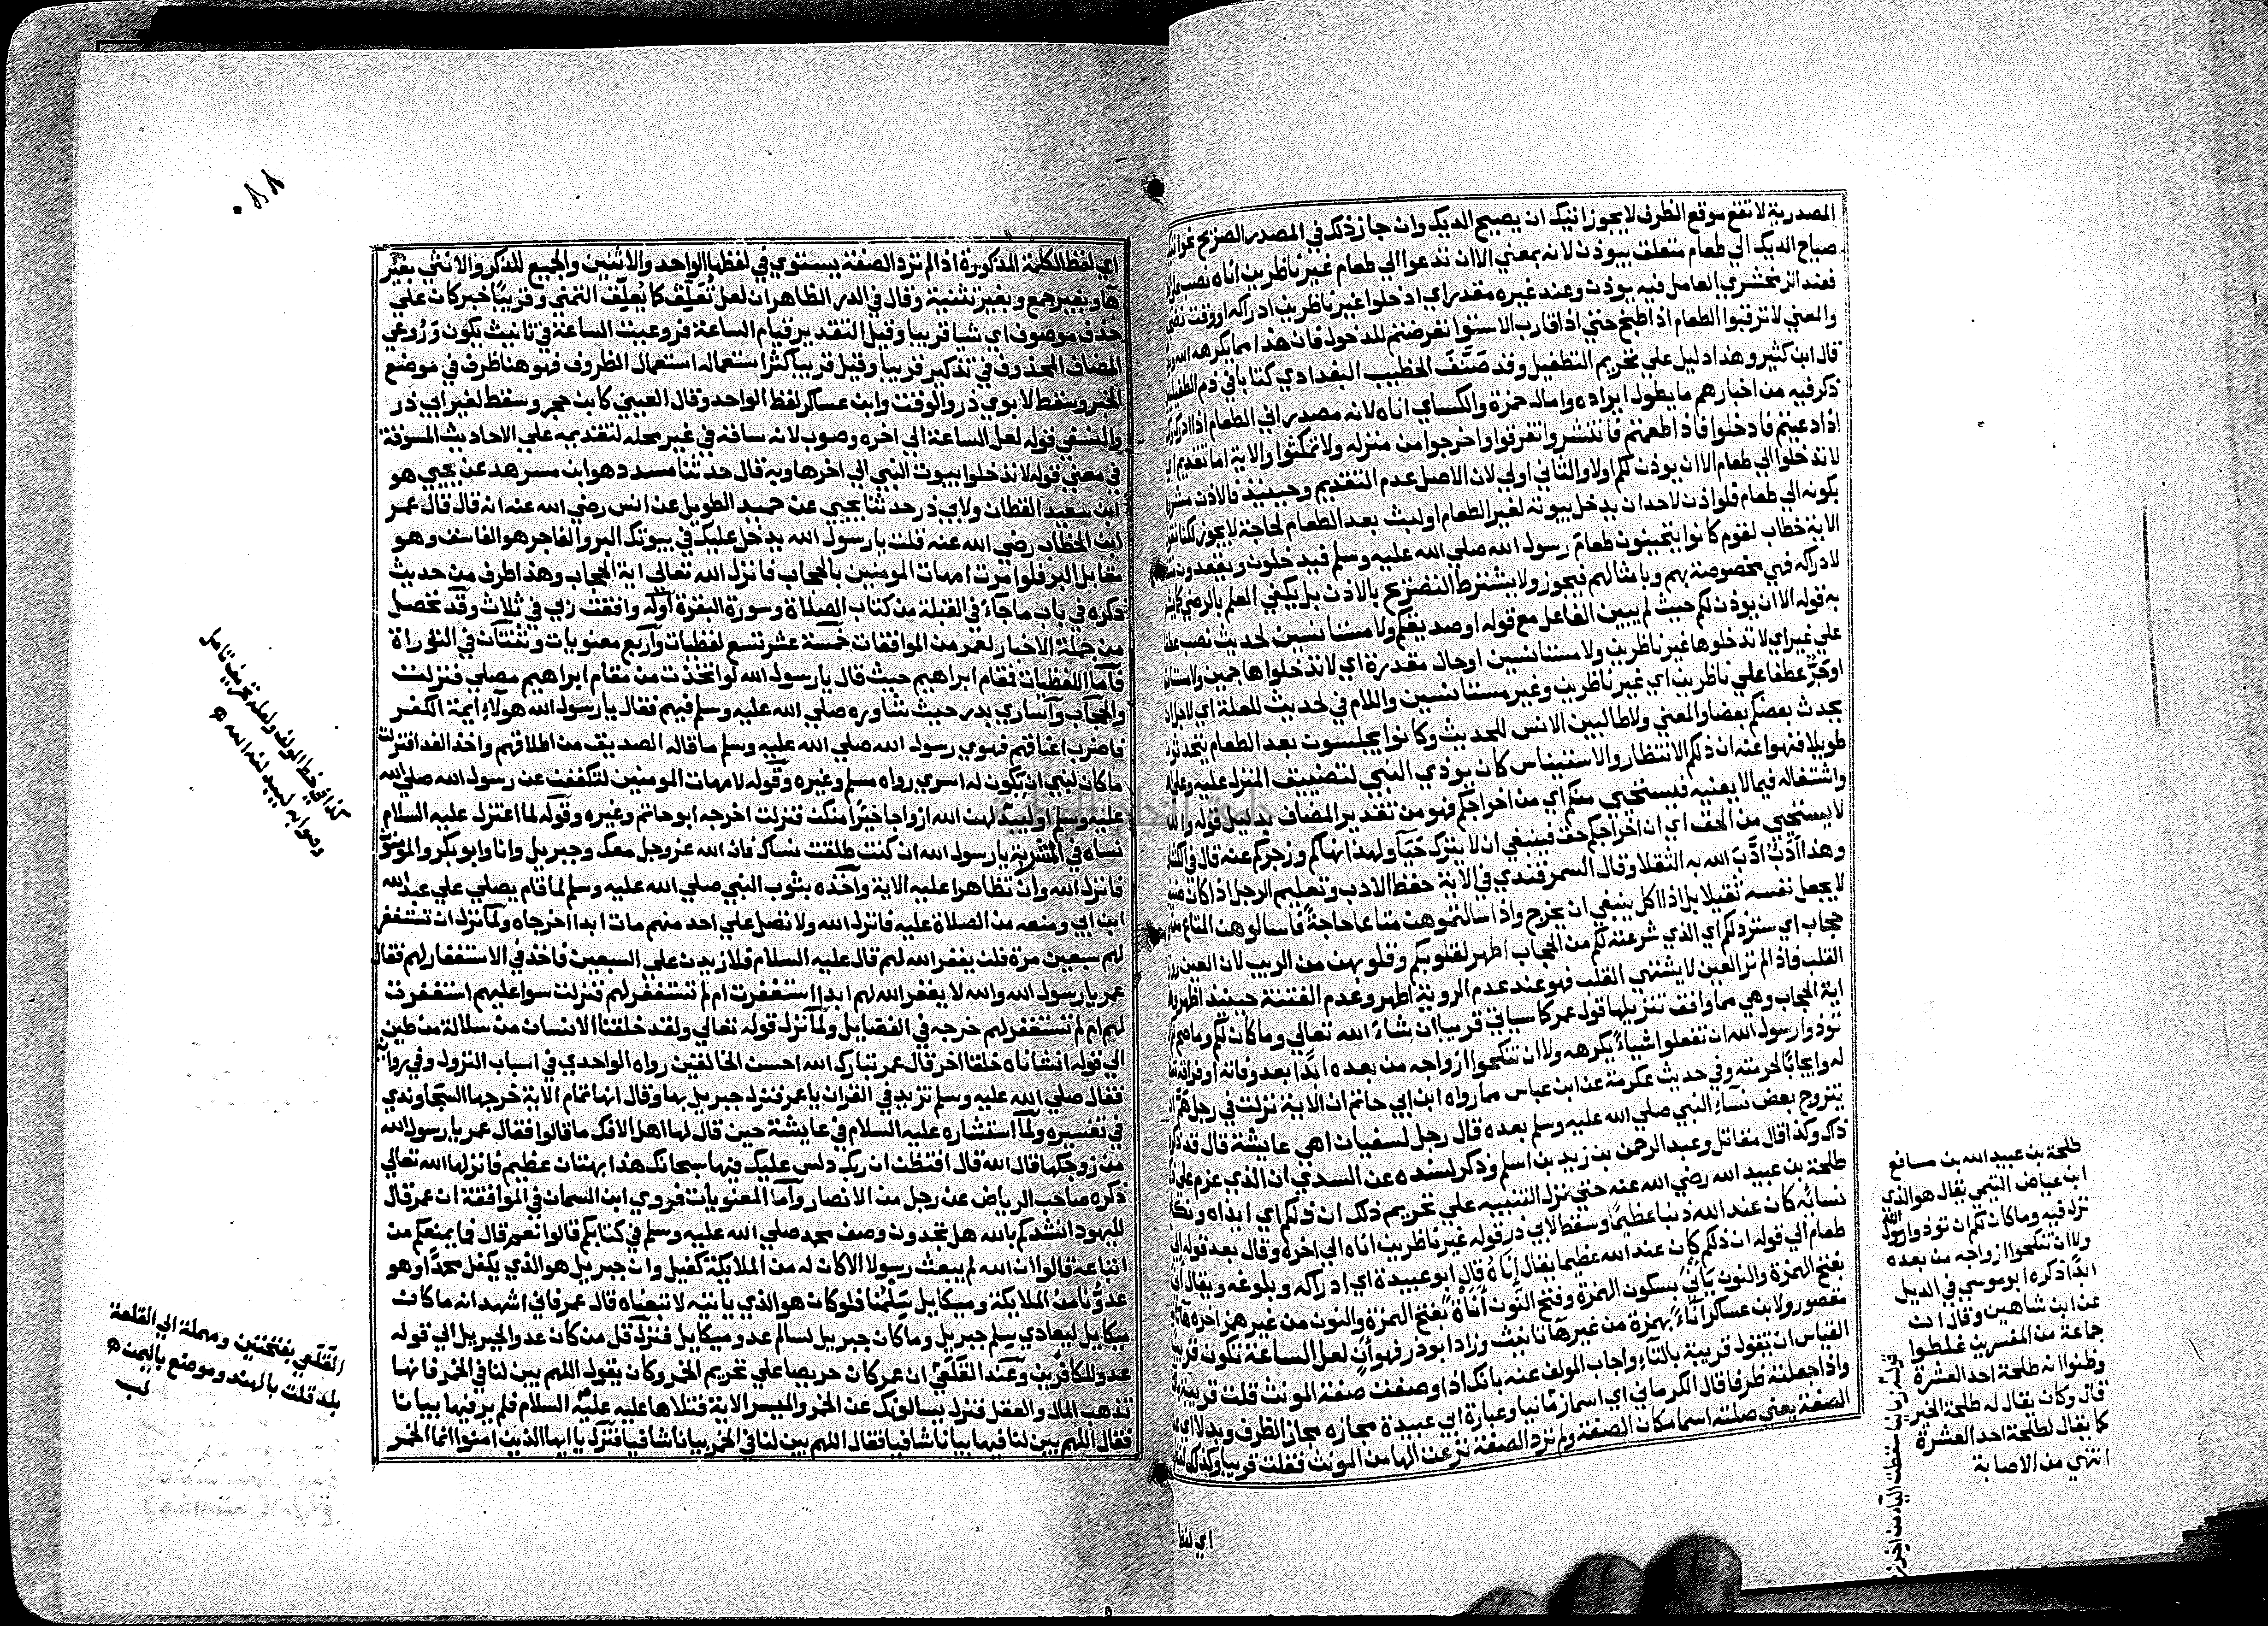 المصدرية لا تقع موقع الظرف لا يجوز اتيك ان يصيح الديك وان جاز ذلك في المصدر الصريح نحو اتيك
صياح الديك الي طعام متعلق بيوذن لانه بمعني الا ان تدعوا الي طعام غير ناظرين اناه نصب
فعند الزمخشري العامل فيه يوذن وعند غيره مقدر اي ادخلوا غير ناظرين ادراكه او وقت نضجه
والمعني لا ترقبوا الطعام اذا طبخ حتي اذا قارب الاستوا تعرضتم للدخول فان هذا مما يكرهه الله
قال ابن كثير وهذا دليل علي تحريم التطفيل وقد صنف الخطيب البغدادي كتابا في ذم الطفيليين
ذكر فيه من اخبارهم ما يطول ايراده وامال حمزة والكسائي اناه لانه مصدر اني الطعام اذا ادرك
اذا دعيتم فادخلوا فاذا طعمتم فانتشروا تفرقوا واخرجوا من منزله ولا تمكثوا والاية اما تقديم
لا تدخلوا الي طعام الا ان يوذن لكم اولا والثاني اولي لان الاصل عدم التقديم وحينيذ فالاذن مشروط
بكونه الي طعام فلو اذن لاحد ان يدخل بيوته لغير الطعام او لبث بعد الطعام لحاجة لا يجوز لكنا نقول
الاية خطاب لقوم كانوا يتحينون طعام رسول الله صلي الله عليه وسلم فيدخلون ويقعدون
لادراكه فهي مخصوصة بهم وبامثالهم فيجوز ولا يشترط التصريح بالاذن بل يكفي العلم بالرضي
به قوله الا ان يوذن لكم حيث لم يبين الفاعل مع قوله او صديقكم ولا مستانسين لحديث نصب عطفا
علي غير اي لا تدخلوها غير ناظرين ولا مستانسين او حال مقدرة اي لا تدخلوا هاجمين ولا مستانسين
او جر عطفا علي ناظرين اي غير ناظرين وغير مستانسين واللام في لحديث للعلة اي لاجل ان
يحدث بعضكم بعضا والمعني ولا طالبين الانس للحديث وكانوا يجلسون بعد الطعام يتحدثون
طويلا فنهوا عنه ان ذلكم الانتظار والاستيناس كان يوذي النبي لتضييق المنزل عليه وعلي
واشتغاله فيما لا يعنيه فيستحيي منكم اي من اخراجكم فهو من تقدير المضاف بدليل قوله والله
لا يستحيي من الحق اي ان اخراجكم حق فينبغي ان لا يترك حياء ولهذا نهاكم وزجركم عنه قال في الكشاف
وهذا ادب ادب الله به الثقلا وقال السمرقندي في الاية حفظ الادب وتعليم الرجل اذا كان ضيفا
لا يجعل نفسه ثقيلا بل اذا اكل ينبغي ان يخرج واذا سالتموهن متاعا حاجة فاسالوهن المتاع من
حجاب اي ستر ذلكم اي الذي شرعته لكم من الحجاب اطهر لقلوبكم وقلوبهن من الريب لان العين
القلب فاذا لم تر العين لا يشتهي القلب فهو عند عدم الروية اطهر وعدم الفتنة حينيذ اظهر
اية الحجاب وهي مما وافق تنزيلها قول عمر كما سياتي قريبا ان شاء الله تعالي وما كان لكم
توذوا رسول الله ان تفعلوا شيئا يكرهه ولا ان تنكحوا ازواجه من بعده ابدا بعد وفاته او فراقه
له وايجابا لحرمته وفي حديث عكرمة عن ابن عباس مما رواه ابن ابي حاتم ان الاية نزلت في رجل هم
يتزوج بعض نساء النبي صلي الله عليه وسلم بعده قال رجل لسفيان اهي عايشة قال قد
ذاك وكذا قال مقاتل وعبد الرحمن بن زيد بن اسلم وذكر بسنده عن السدي ان الذي عزم علي ذلك
طلحة بن عبيد الله رضي الله عنه حتي نزل التنبيه علي تحريم ذلك ان ذلكم اي ايذاه ونكاح
نسائه كان عند الله ذنبا عظيما وسقط لابي ذر قوله غير ناظرين اناه الي اخره وقال بعد قوله الي
طعام الي قوله ان ذلكم كان عند الله عظيما يقال اناه قال ابو عبيدة اي ادراكه وبلوغه ويقال
بفتح الهمزة والنون ياني بسكون الهمزة وفتح النون اناة بفتح الهمزة والنون من غير همز اخره
مقصور ولابن عساكر اناء بهمزة من غير هاء تانيث وزاد ابو ذر فهو ان لعل الساعة تكون قريبا
القياس ان يقول قريبة بالتاء واجاب المولف عنه بانك اذا وصفت صفة المونث قلت قريبة
واذا جعلته ظرفا قال الكرماني اي اسما زمانيا وعبارة ابي عبيدة مجازه مجاز الظرف وبدلا اي عن
الصفة يعني جعلته اسما مكان الصفة ولم ترد الصفة نزعت الها من المونث فقلت قريبا وكذلك لفظها
اي لفظ
طلحة بن عبيد الله بن مسافع
ابن عياض التيمي يقال هو الذي
نزل فيه وما كان لكم ان توذوا رسول الله
ولا ان تنكحوا ازواجه من بعده
ابدا ذكره ابو موسي في الذيل
عن ابن شاهين وقال ان
جماعة من المفسرين غلطوا
وظنوا انه طلحة احد العشرة
قال وكان يقال له طلحة الخير
كما يقال لطلحة احد العشرة
انتهي من الاصابة
٠٨٨
اي لفظ الكلمة المذكورة اذا لم ترد الصفة يستوي في لفظها الواحد والاثنين والجميع للذكر والانثي بغير
هاء وبغير جمع وبغير تثنية وقال في الدر الظاهر ان لعل تعلق كما يعلق التمني وقريبا خبر كان علي
حذف موصوف اي شيا قريبا وقيل التقدير قيام الساعة فروعيت الساعة في تانيث يكون وروعي
المضاف المحذوف في تذكير قريبا وقيل قريبا كثر استعماله استعمال الظروف فهو هنا ظرف في موضع
الخبر وسقط لابوي ذر والوقت وابن عساكر لفظ الواحد وقال العيني كابن حجر وسقط لغير ابي ذر
والنسفي قوله لعل الساعة الي اخره وصوب لانه ساقه في غير محله لتقديمه علي الاحاديث المسوقة
في معني قوله لا تدخلوا بيوت النبي الي اخرها وبه قال حدثنا مسدد هو ابن مسرهد عن يحيي هو
ابن سعيد القطان ولابي ذر حدثنا يحيي عن حميد الطويل عن انس رضي الله عنه انه قال قال عمر
ابن الخطاب رضي الله عنه قلت يا رسول الله يدخل عليك في بيوتك البر والفاجر هو الفاسق وهو
مقابل البر فلو امرت امهات المومنين بالحجاب فانزل الله تعالي اية الحجاب وهذا طرف من حديث
ذكره في باب ما جاء في القبلة من كتاب الصلاة وسورة البقرة اوله وافقت ربي في ثلاث وقد تحصل
من جملة الاخبار لعمر من الموافقات خمسة عشر تسع لفظيات واربع معنويات وثنتان في التوراة
فاما اللفظيات فمقام ابراهيم حيث قال يا رسول الله لو اتخذت من مقام ابراهيم مصلي فنزلت
والحجاب واساري بدر حيث شاوره صلي الله عليه وسلم فيهم فقال يا رسول الله هولاء ايمة الكفر
فاضرب اعناقهم فهوي رسول الله صلي الله عليه وسلم ما قاله الصديق من اطلاقهم واخذ الفدا فنزلت
ما كان لنبي ان تكون له اسري رواه مسلم وغيره وقوله لامهات المومنين لتكففن عن رسول الله صلي الله
عليه وسلم او ليبدلنه الله ازواجا خيرا منكن فنزلت اخرجه ابو حاتم وغيره وقوله لما اعتزل عليه السلام
نساه في المشربة يا رسول الله ان كنت طلقت نساك فان الله عز وجل معك وجبريل وانا وابو بكر والمومنون
فانزل الله وان تظاهرا عليه الاية واخذه بثوب النبي صلي الله عليه وسلم لما قام يصلي علي عبد الله
ابن ابي ومنعه من الصلاة عليه فانزل الله ولا تصل علي احد منهم مات ابدا اخرجاه ولما نزل ان تستغفر
لهم سبعين مرة فلن يغفر الله لهم قال عليه السلام فلازيدن علي السبعين فاخذ في الاستغفار لهم فقال
عمر يا رسول الله والله لا يغفر الله لهم ابدا استغفرت ام لم تستغفر لهم فنزلت سوا عليهم استغفرت
لهم ام لم تستغفر لهم خرجه في الفضايل ولما نزل قوله تعالي ولقد خلقنا الانسان من سلالة من طين
الي قوله انشاناه خلقا اخر قال عمر تبارك الله احسن الخالقين رواه الواحدي في اسباب النزول وفي رواية
فقال صلي الله عليه وسلم تزيد في القران يا عمر فنزل جبريل بها وقال انها تمام الاية خرجها السجاوندي
في تفسيره ولما استشاره عليه السلام في عايشة حين قال لها اهل الافك ما قالوا فقال عمر يا رسول الله
من زوجكها قال الله قال افتظن ان ربك دلس عليك فيها سبحانك هذا بهتان عظيم فانزلها الله تعالي
ذكره صاحب الرياض عن رجل من الانصار واما المعنويات فروي ابن السمان في الموافقة ان عمر قال
لليهود انشدكم بالله هل تجدون وصف محمد صلي الله عليه وسلم في كتابكم قالوا نعم قال فما يمنعكم من
اتباعه قالوا ان الله لم يبعث رسولا الا كان له من الملايكة كفيل وان جبريل هو الذي يكفل محمدا وهو
عدونا من الملايكة وميكايل سلمنا فلو كان هو الذي ياتيه لاتبعناه قال عمر فاني اشهد انه ما كان
ميكايل ليعادي سلم جبريل وما كان جبريل ليسالم عدو ميكايل فنزل قل من كان عدوا لجبريل الي قوله
عدو للكافرين وعند القلعي ان عمر كان حريصا علي تحريم الخمر وكان يقول اللهم بين لنا في الخمر فانها
تذهب المال والعقل فنزل يسالونك عن الخمر والميسر الاية فتلاها عليه عليه السلام فلم ير فيها بيانا
فقال اللهم بين لنا فيها بيانا شافيا فقال اللهم بين لنا في الخمر بيانا شافيا فنزل يا ايها الذين امنوا انما الخمر
كذا في خط المولف ولعله تحريف تامل
وصوابه ليبدلنه الله
القلعي بفتحتين ومهملة الي القلعة
بلد قلت بالهند وموضع باليمن
لب